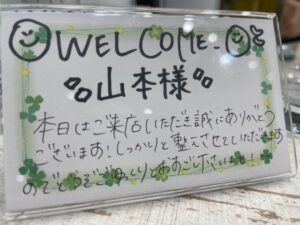 WELCOME
山本様
本日はご来店いただき誠にありがとう
ございます!しっかりと整えさせていただきます
のでどうぞごゆっくりとおすごし下さいませ!